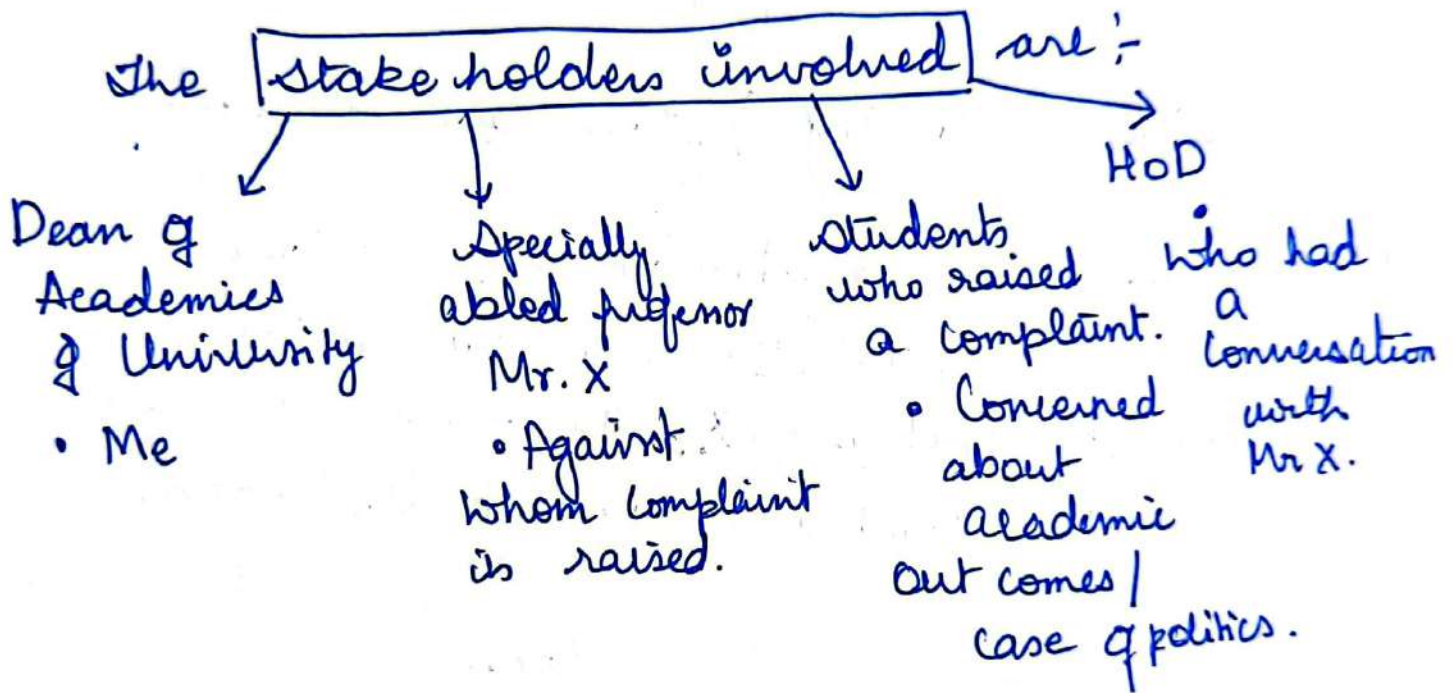 The stake holders involved are :-
Dean of
Academics
of University
• Me
Specially
abled professor
Mr. X
• Against
whom complaint
is raised.
Students
who raised
a complaint.
• Concerned
about
academic
out comes /
case of politics.
HoD
• who had
a
conversation
with
Mr X.